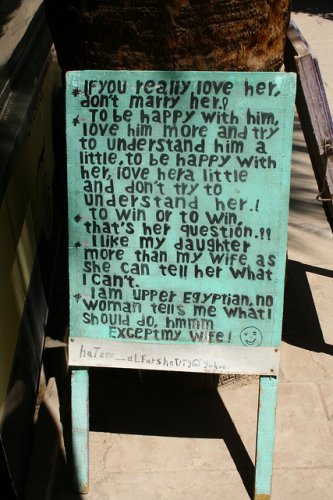 * If you really love her,
don't marry her.!
* To be happy with him,
love him more and try
to understand him a
little, to be happy with
her, love hera little
and don't try to
understand her.!
* to win or to win,
that's her question.!!
* I like my daughter
more than my wife as
she can tell her what
I can't.
* I am upper Egyptian, no
woman tells me what I
should do, hmmm
Except my wife!